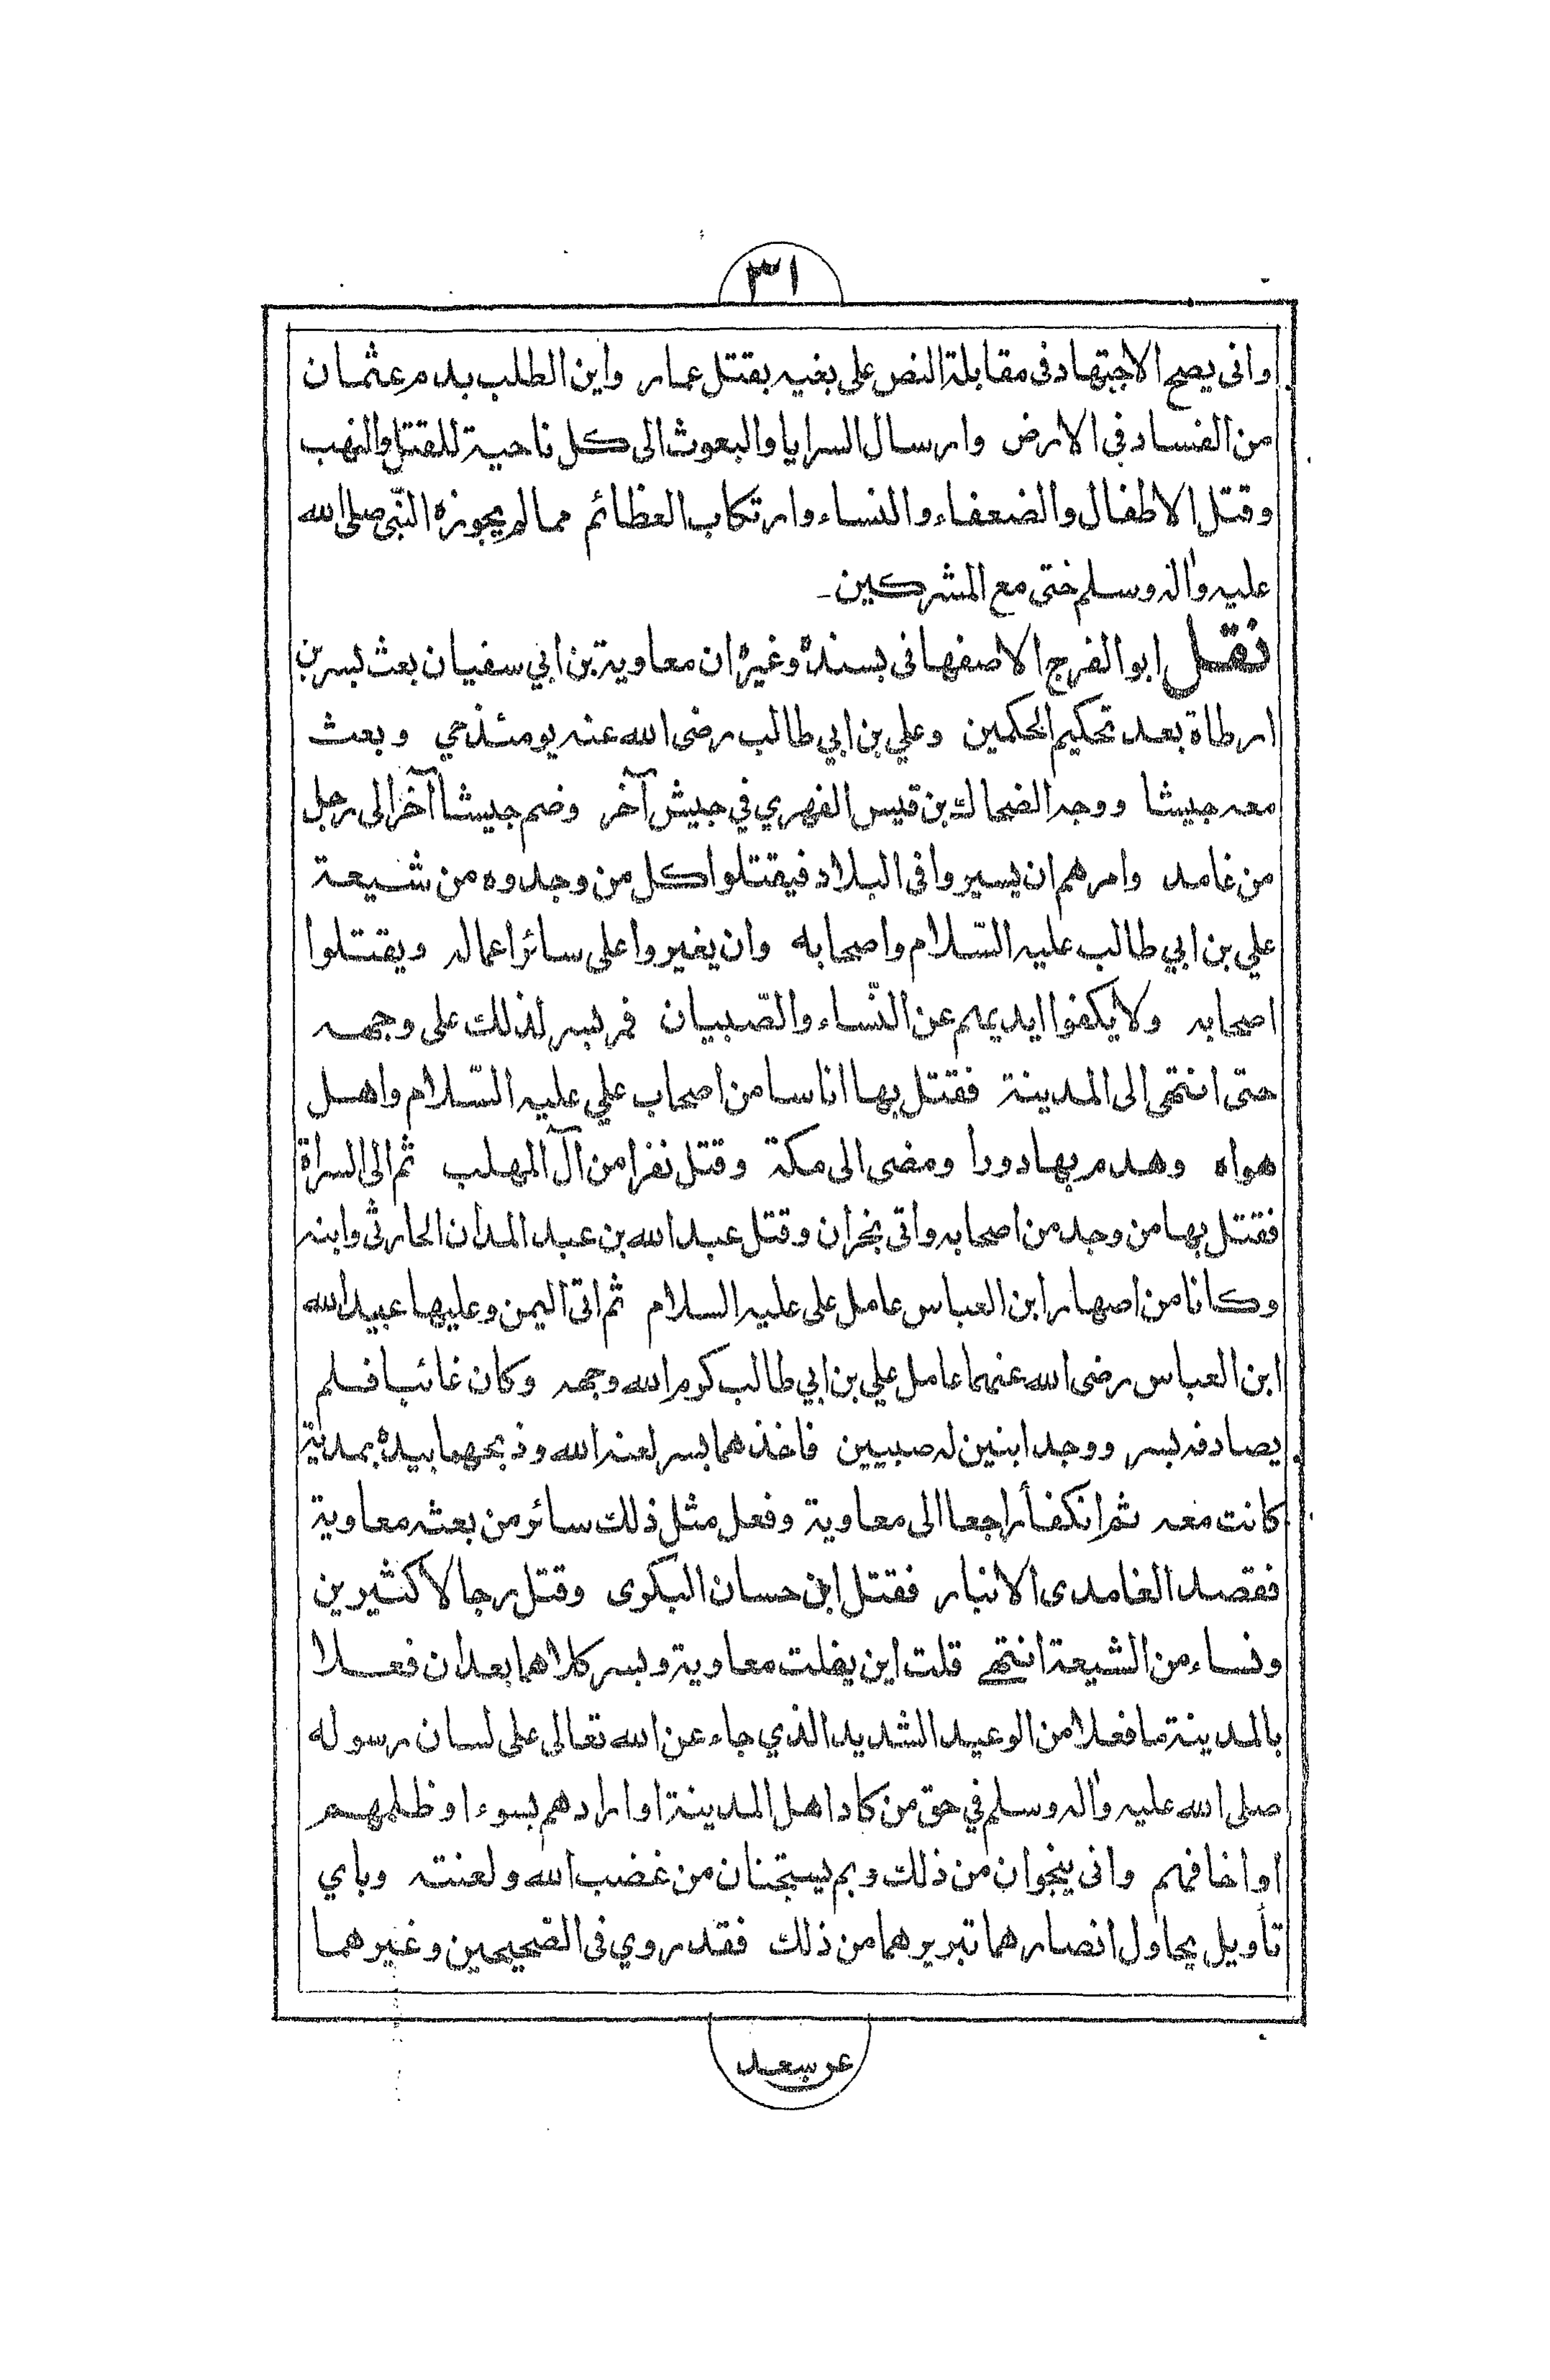 ٣١
واني يصح الاجتهاد في مقابلة النص على بغيه بقتل عمار واين الطلب بدم عثمان
من الفساد في الارض وارسال السرايا والبعوث الى كل ناحية للقتل والنهب
وقتل الاطفال والضعفاء والنساء وارتكاب العظائم مما لم يجوزه النّبي صلى الله
عليه واٰله وسلم حتى مع المشركين۔
نقل ابو الفرج الاصفهانى بسنده وغيره ان معاوية بن ابي سفيان بعث بسر بن
ارطاة بعد تحكيم الحكمين وعلي بن ابي طالب رضى الله عنه يومئذ حي وبعث
معه جيشا ووجه الضحاك بن قيس الفهري في جيش آخر وضم جيشا آخر الى رجل
من غامد وامرهم ان يسيروا فى البلاد فيقتلوا كل من وجدوه من شيعة
علي بن ابي طالب عليه السّلام واصحابه وان يغيروا على سائر اعماله ويقتلوا
اصحابه ولا يكفوا ايديهم عن النّساء والصّبيان فمر بسر لذلك على وجهه
حتى انتهى الى المدينة فقتل بها اناسا من اصحاب علي عليه السّلام واهل
هواه وهدم بها دورا ومضى الى مكة وقتل نفرا من آل المهلب ثم الى السراة
فقتل بها من وجد من اصحابه واتى نجران وقتل عبد الله بن عبد المدان الحارثى وابنه
وكانا من اصهار ابن العباس عامل على عليه السلام ثم اتى اليمن وعليها عبيد الله
ابن العباس رضى الله عنهما عامل علي بن ابي طالب كرم الله وجهه وكان غائبا فلم
يصادفه بسر ووجد ابنين له صبيين فاخذهما بسر لعنه الله وذبحهما بيده بمدية
كانت معه ثم انكفأ راجعا الى معاوية وفعل مثل ذلك سائر من بعثه معاوية
فقصد الغامدى الانبار فقتل ابن حسان البكرى وقتل رجالا كثيرين
ونساء من الشيعة انتهى قلت اين يفلت معاوية وبسر كلاهما بعد ان فعلا
بالمدينة ما فعلا من الوعيد الشديد الذي جاء عن الله تعالى على لسان رسوله
صلى الله عليه واٰله وسلم في حق من كاد اهل المدينة او ارادهم بسوء او ظلمهم
او اخافهم وانى ينجوان من ذلك وبم يستجنان من غضب الله ولعنته وباي
تأويل يحاول انصارهما تبريرهما من ذلك فقد روي فى الصّحيحين وغيرهما